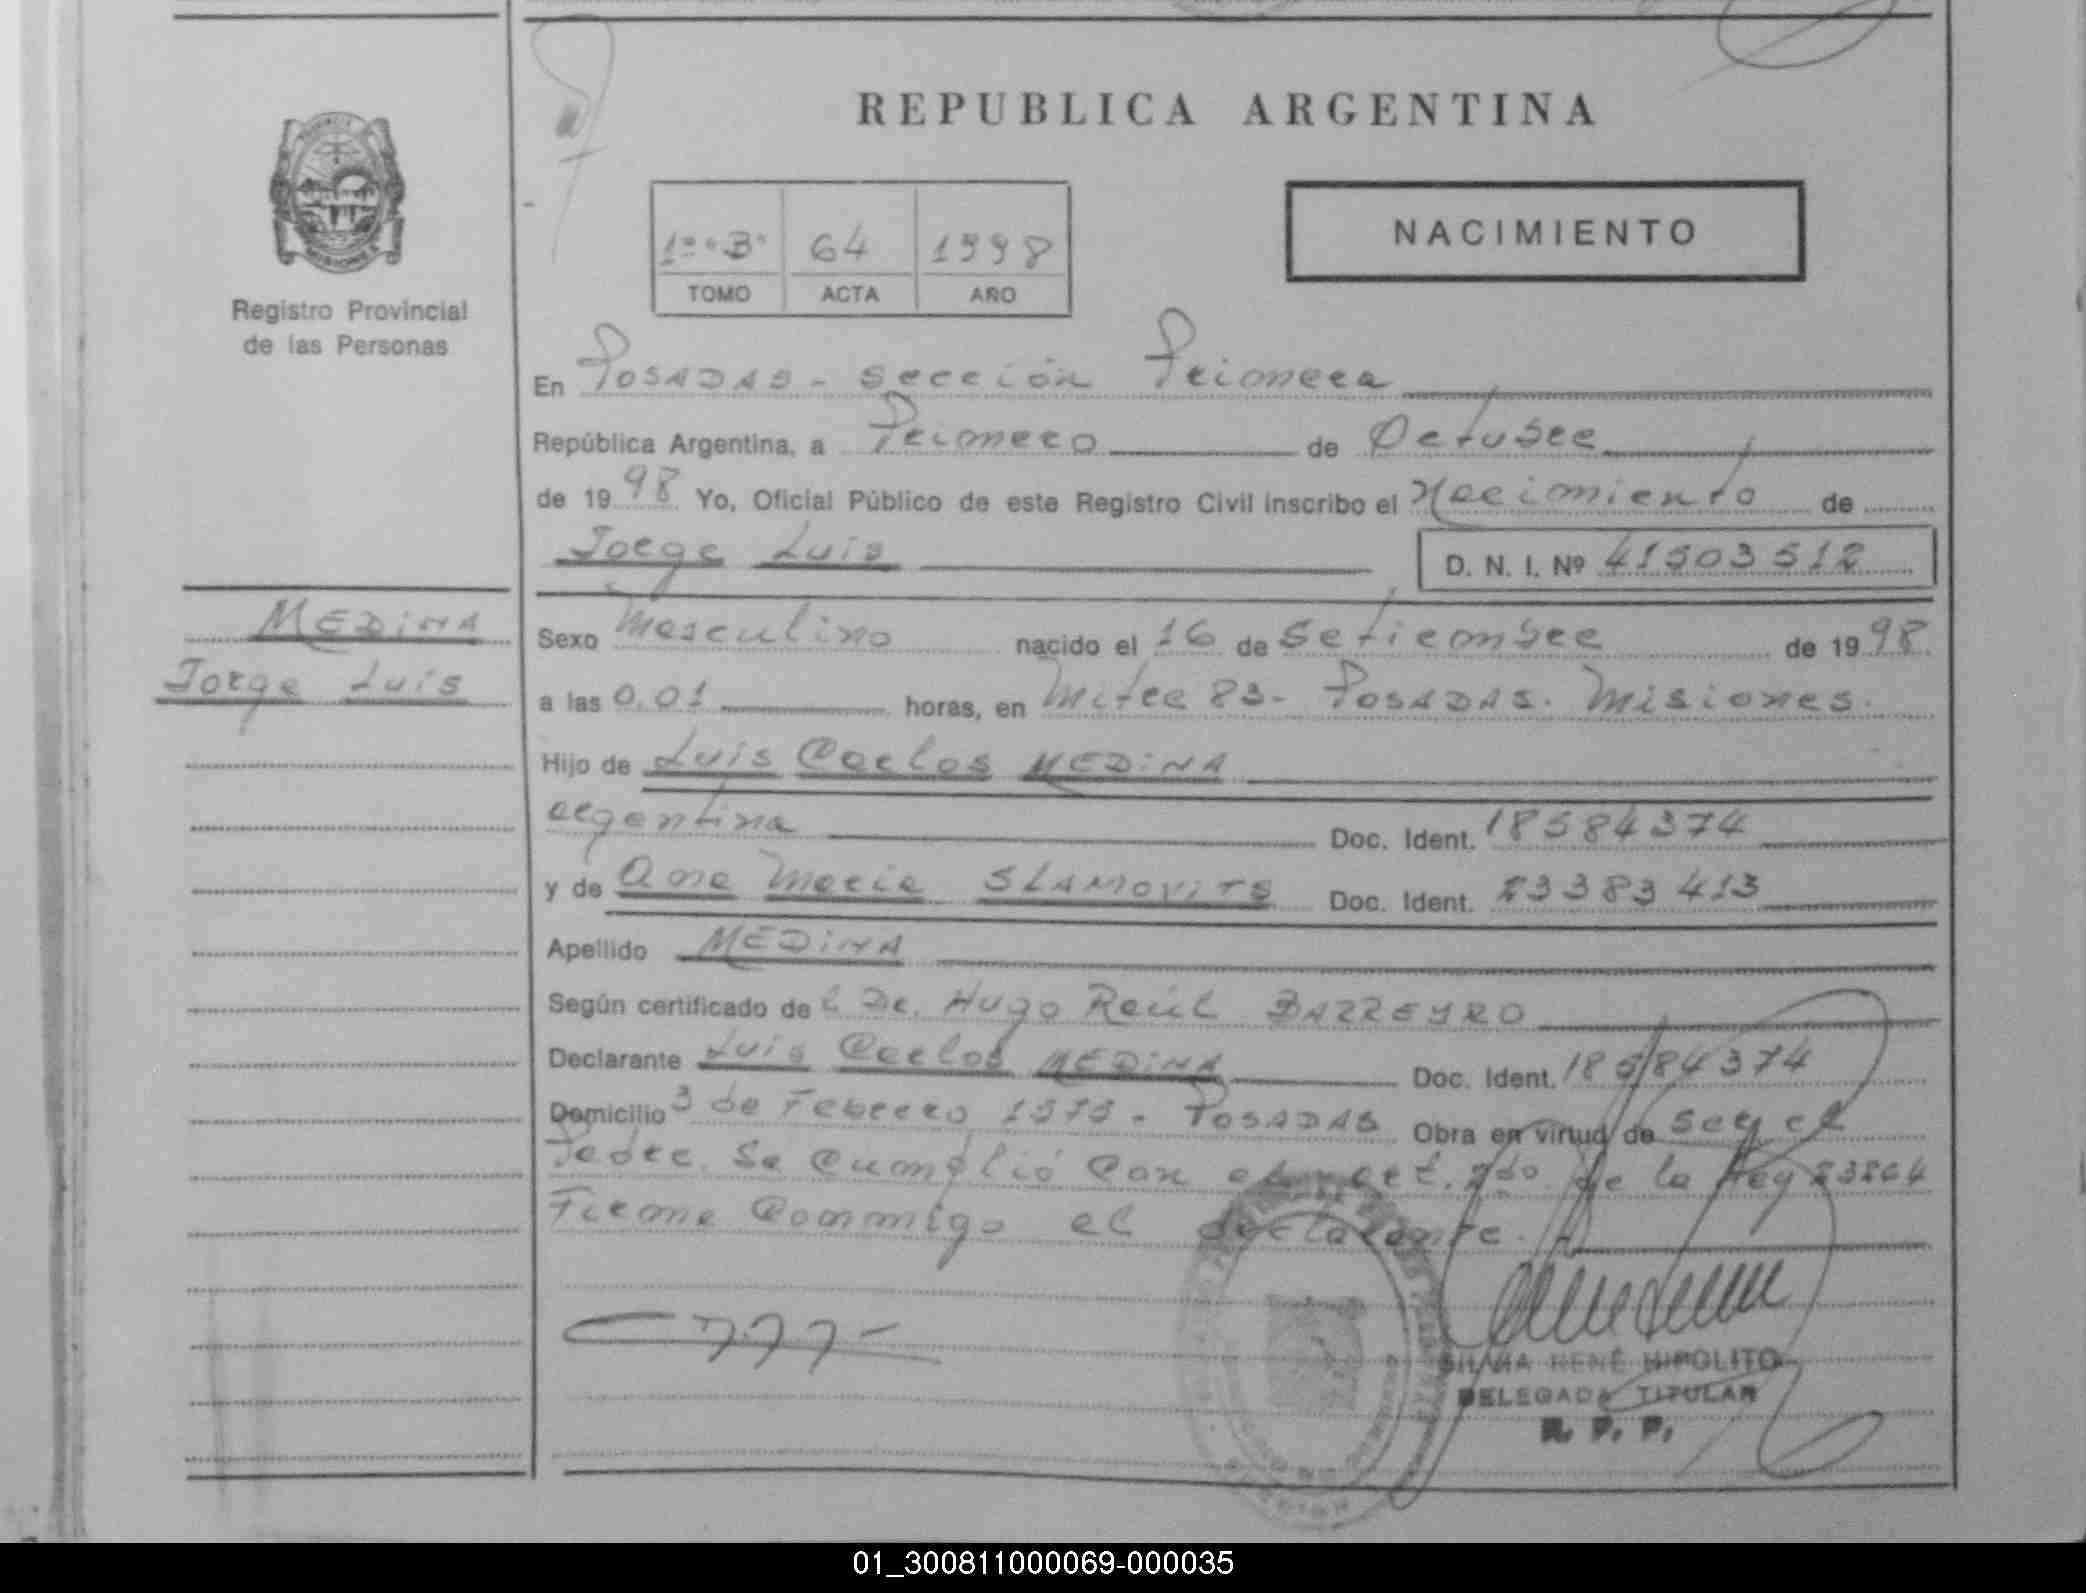 REPUBLICA ARGENTINA
NACIMIENTO
1º "B" 64 1998
TOMO ACTA AÑO
Registro Provincial
de las Personas
En Posadas - Sección Primera
República Argentina, a Primero de Octubre
de 1998 Yo, Oficial Público de este Registro Civil inscribo el Nacimiento de
Jorge Luis D. N. I. Nº 41503512
MEDINA
Jorge Luis
Sexo Masculino nacido el 16 de Setiembre de 1998
a las 0,01 horas, en Mitre 83 - Posadas. Misiones.
Hijo de Luis Carlos MEDINA
argentina Doc. Ident. 18584374
y de Ana Maria SLAMOVITS Doc. Ident. 23383413
Apellido MEDINA
Según certificado del Dr. Hugo Raúl BARREYRO
Declarante Luis Carlos MEDINA Doc. Ident. 18584374
Domicilio 3 de Febrero - Posadas Obra en virtud de ser el
Padre. Se Cumplió con el art. 2do de la Ley 23264
Firma Conmmigo el declarante.
SILVIA RENÉ HIPOLITO
DELEGADA TITULAR
R. P. P.
01_300811000069-000035